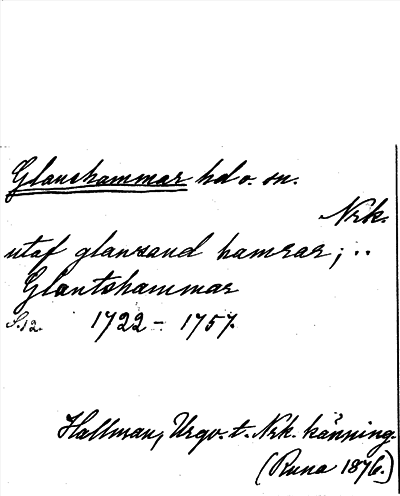 Glanshammar hd o. sn.
Nrk.
utaf glansand hamrar; ..
Glantshammar
S. 12. 1722 - 1757.
Hallman, Urgv. t. Nrk. känning.
(Runa 1876.)